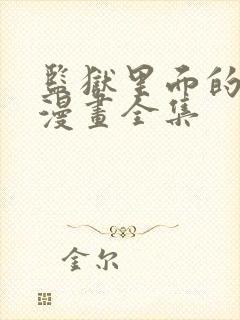 監獄里面的
漫畫全集
金尔